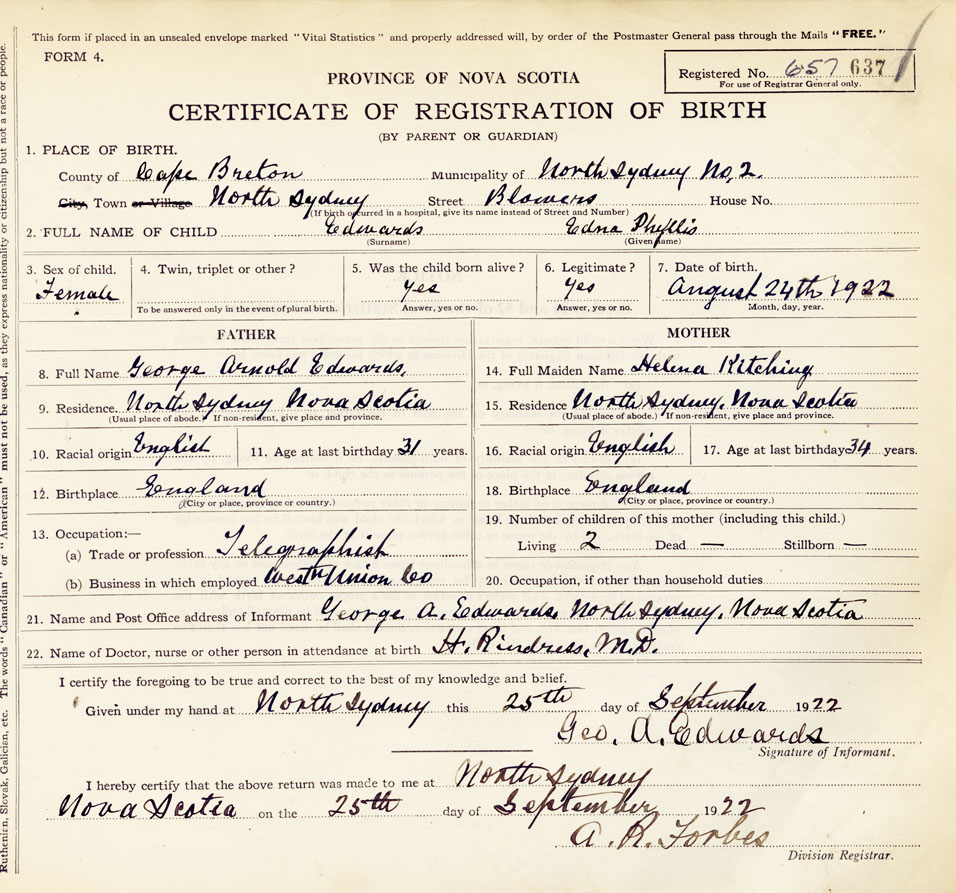 This form if placed in an unsealed envelope marked "Vital Statistics" and properly addressed will, by order of the Postmaster General pass through the Mails "FREE."
FORM 4.
Registered No. 657 637
For use of Registrar General only.
PROVINCE OF NOVA SCOTIA
CERTIFICATE OF REGISTRATION OF BIRTH
(BY PARENT OR GUARDIAN)
1. PLACE OF BIRTH.
County of Cape Breton Municipality of North Sydney No. 2.
City, Town or Village North Sydney Street Blowers House No.
(If birth occurred in a hospital, give its name instead of Street and Number)
2. FULL NAME OF CHILD Edwards Edna Phyllis
(Surname) (Given name)
3. Sex of child. 4. Twin, triplet or other? 5. Was the child born alive? 6. Legitimate? 7. Date of birth.
Female yes yes August 24th 1922
To be answered only in the event of plural birth. Answer, yes or no. Answer, yes or no. Month, day, year.
FATHER MOTHER
8. Full Name George Arnold Edwards. 14. Full Maiden Name Helena Kitching
9. Residence North Sydney Nova Scotia 15. Residence North Sydney. Nova Scotia
(Usual place of abode. If non-resident, give place and province. (Usual place of abode.) If non-resident, give place and province.
10. Racial origin English 11. Age at last birthday 31 years. 16. Racial origin English 17. Age at last birthday 34 years.
12. Birthplace England 18. Birthplace England
(City or place, province or country.) (City or place, province or country.)
13. Occupation:— 19. Number of children of this mother (including this child.)
(a) Trade or profession Telegraphist Living 2 Dead — Stillborn —
(b) Business in which employed Westn Union Co 20. Occupation, if other than household duties
21. Name and Post Office address of Informant George A. Edwards, North Sydney, Nova Scotia
22. Name of Doctor, nurse or other person in attendance at birth H. Rindress, M.D.
I certify the foregoing to be true and correct to the best of my knowledge and belief.
Given under my hand at North Sydney this 25th day of September 1922
Geo. A. Edwards
Signature of Informant.
I hereby certify that the above return was made to me at North Sydney
Nova Scotia on the 25th day of September 1922
A. R. Forbes
Division Registrar.
Ruthenian, Slovak, Galician, etc. The words "Canadian" or "American" must not be used, as they express nationality or citizenship but not a race or people.